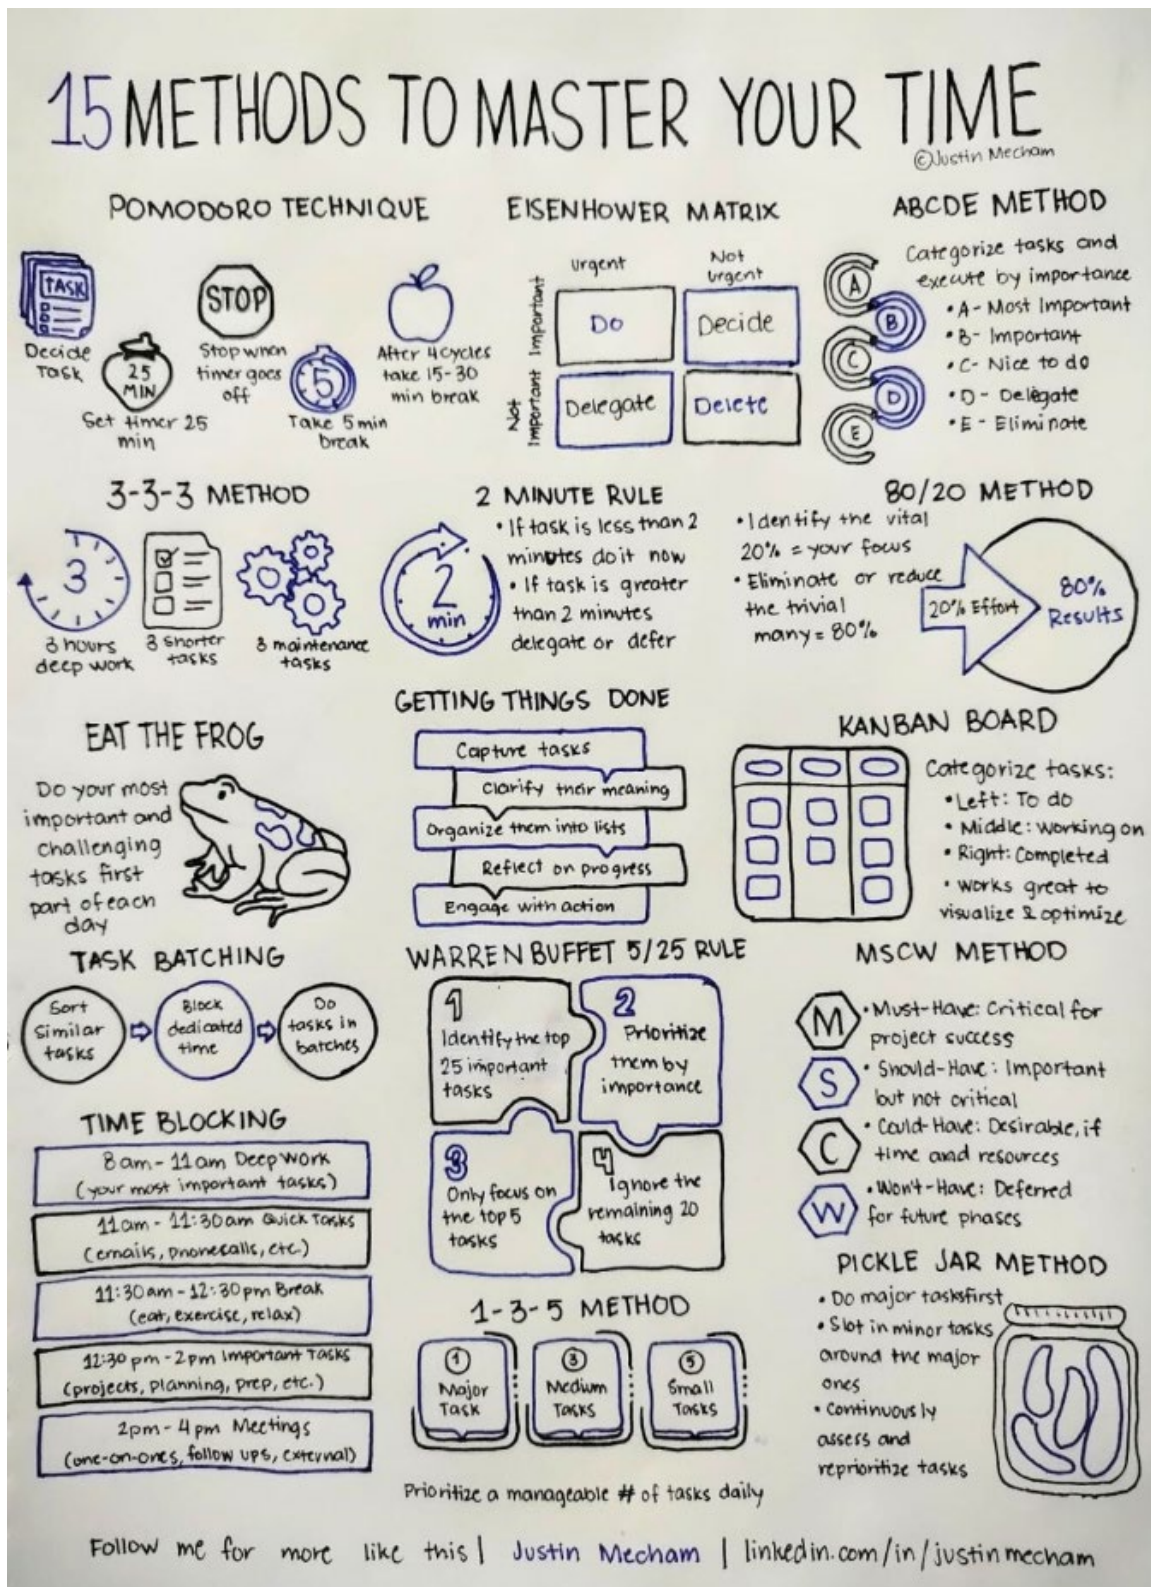 15 METHODS TO MASTER YOUR TIME
©Justin Mecham
POMODORO TECHNIQUE
TASK
Decide
Task
25
MIN
Set timer 25
min
STOP
Stop when
timer goes
off
5
Take 5 min
break
After 4 cycles
take 15-30
min break
EISENHOWER MATRIX
Urgent
Not
urgent
Important
Not
Important
Do
Decide
Delegate
Delete
ABCDE METHOD
Categorize tasks and
execute by importance
A
B
C
D
E
• A - Most Important
• B - Important
• C - Nice to do
• D - Delegate
• E - Eliminate
3-3-3 METHOD
3
3 hours
deep work
3 shorter
tasks
3 maintenance
tasks
2 MINUTE RULE
2
min
• If task is less than 2
minutes do it now
• If task is greater
than 2 minutes
delegate or defer
80/20 METHOD
• Identify the vital
20% = your focus
• Eliminate or reduce
the trivial
many = 80%
20% Effort
80%
Results
EAT THE FROG
Do your most
important and
challenging
tasks first
part of each
day
GETTING THINGS DONE
Capture tasks
Clarify their meaning
Organize them into lists
Reflect on progress
Engage with action
KANBAN BOARD
Categorize tasks:
• Left: To do
• Middle: Working on
• Right: Completed
• Works great to
visualize & optimize
TASK BATCHING
Sort
Similar
tasks
Block
dedicated
time
Do
tasks in
batches
WARREN BUFFET 5/25 RULE
1
Identify the top
25 important
tasks
2
Prioritize
them by
importance
3
Only focus on
the top 5
tasks
4
Ignore the
remaining 20
tasks
MSCW METHOD
M
• Must-Have: Critical for
project success
S
• Should-Have: Important
but not critical
C
• Could-Have: Desirable, if
time and resources
W
• Won't-Have: Deferred
for future phases
TIME BLOCKING
8am - 11am Deep Work
(your most important tasks)
11am - 11:30am Quick Tasks
(emails, phonecalls, etc.)
11:30am - 12:30pm Break
(eat, exercise, relax)
12:30pm - 2pm Important Tasks
(projects, planning, prep, etc.)
2pm - 4pm Meetings
(one-on-ones, follow ups, external)
1-3-5 METHOD
1
Major
Task
3
Medium
Tasks
5
Small
Tasks
Prioritize a manageable # of tasks daily
PICKLE JAR METHOD
• Do major tasks first
• Slot in minor tasks
around the major
ones
• Continuously
assess and
reprioritize tasks
Follow me for more like this | Justin Mecham | linkedin.com/in/justinmecham